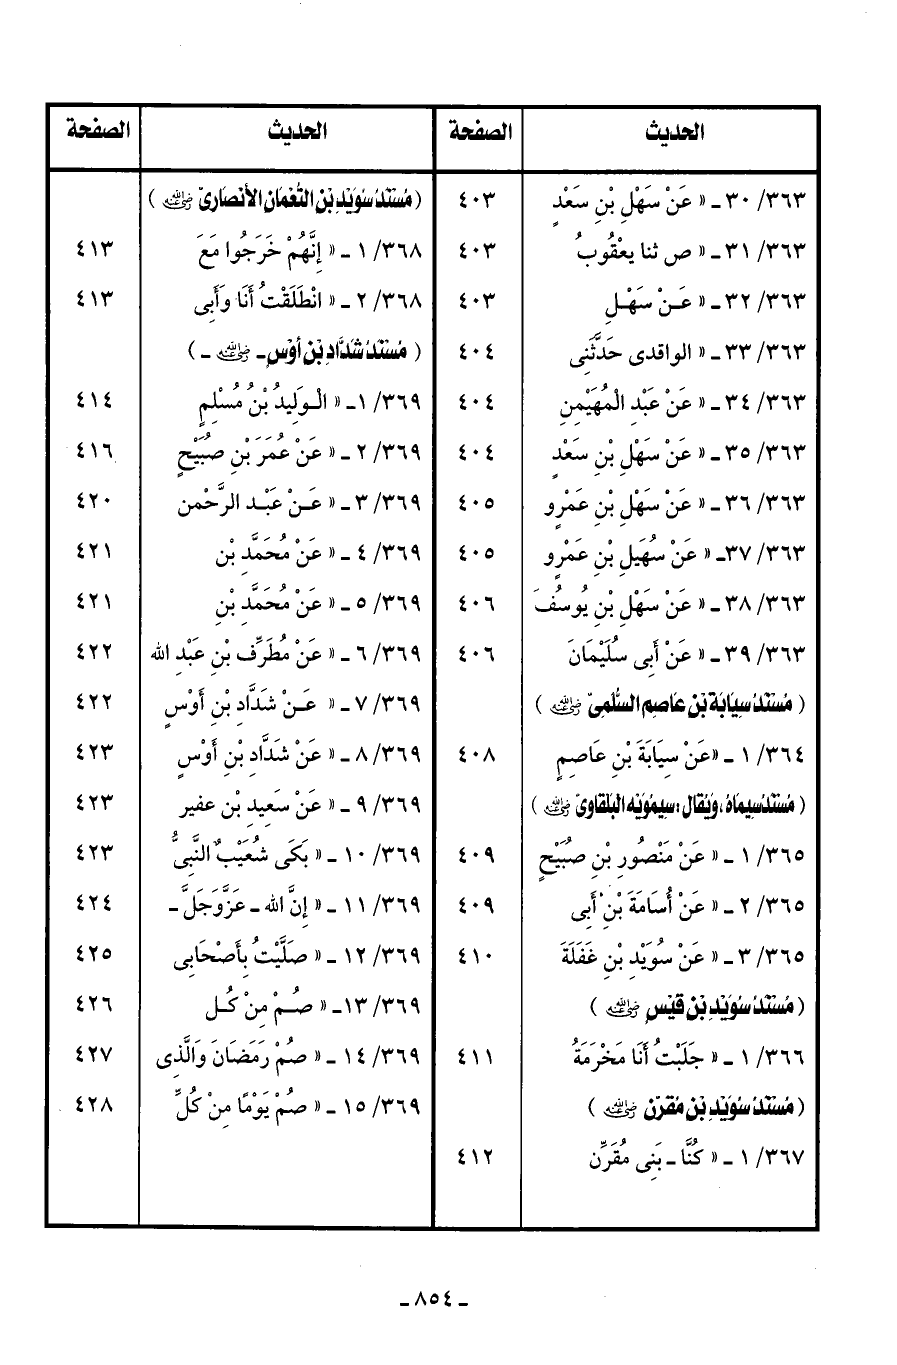 الحديث الصفحة
٣٦٣/ ٣٠ ـ « عَنْ سَهْلِ بْنِ سَعَدٍ ٤٠٣
٣٦٣/ ٣١ ـ « ص ثنا يعْقُوبُ ٤٠٣
٣٦٣/ ٣٢ ـ « عَـنْ سَهْـلِ ٤٠٣
٣٦٣/ ٣٣ ـ « الواقدى حَدَّثَنِى ٤٠٤
٣٦٣/ ٣٤ ـ « عَنْ عَبْدِ الْمُهَيْمِنِ ٤٠٤
٣٦٣/ ٣٥ ـ « عَنْ سَهْلِ بْنِ سَعَدٍ ٤٠٤
٣٦٣/ ٣٦ ـ « عَنْ سَهْلِ بْنِ عَمْرٍو ٤٠٥
٣٦٣/ ٣٧ـ « عَنْ سُهَيلِ بْنِ عَمْرٍو ٤٠٥
٣٦٣/ ٣٨ ـ « عَنْ سَهْلِ بْنِ يُوسُفَ ٤٠٦
٣٦٣/ ٣٩ ـ « عَنْ أَبِى سُلَيْمَانَ ٤٠٦
( مُسْنَدُ سِيَابَة بْن عَاصِم السُّلَمِىّ ﵁ )
٣٦٤/ ١ ـ «عَنْ سِيَابَةَ بْنِ عَاصِمٍ ٤٠٨
( مُسْنَدُ سيماه ، وَيُقَال : سيمُوَيْه البَلْقَاوِىّ ﵁ )
٣٦٥/ ١ ـ « عَنْ مَنْصُورِ بْنِ صُبَيْحٍ ٤٠٩
٣٦٥/ ٢ ـ « عَنْ أُسَامَةَ بْنِ أَبِى ٤٠٩
٣٦٥/ ٣ ـ « عَنْ سُوَيْدِ بْنِ غَفَلَةَ ٤١٠
( مُسْنَدُ سُوَيْدِ بْنِ قَيْسٍ ﵁ )
٣٦٦/ ١ ـ « جَلَبْتُ أَنَا مَخْرَمَةُ ٤١١
( مُسْنَدُ سُوَيْدِ بْنِ مُقَرِّنٍ ﵁ )
٣٦٧/ ١ ـ « كُنَّا ـ بَنِى مُقَرِّن ٤١٢
الحديث الصفحة
( مُسْنَدُ سُوَيْدِ بْنِ النُّعْمَانِ الأَنْصَارِىِّ ﵁ )
٣٦٨/ ١ ـ « إِنَّهُمْ خَرَجُوا مَعَ ٤١٣
٣٦٨/ ٢ ـ « انْطَلَقْتُ أَنَا وَأَبِى ٤١٣
( مُسْنَدُ شَدَّادِ بْنِ أَوْسٍ ـ ﵁ ـ )
٣٦٩/ ١ـ « الْـوَلِيدُ بْنُ مُسْلِمٍ ٤١٤
٣٦٩/ ٢ ـ « عَنْ عُمَرَ بْنِ صُبَيْحٍ ٤١٦
٣٦٩/ ٣ ـ « عَـنْ عَبْـدِ الرَّحْمن ٤٢٠
٣٦٩/ ٤ ـ « عَنْ مُحَمَّدِ بْنِ ٤٢١
٣٦٩/ ٥ ـ « عَنْ مُحَمَّدِ بْنِ ٤٢١
٣٦٩/ ٦ ـ « عَنْ مُطَرِّفِ بْنِ عَبْدِ الله ٤٢٢
٣٦٩/ ٧ ـ « عَـنْ شَدَّادِ بْنِ أَوْسٍ ٤٢٢
٣٦٩/ ٨ ـ « عَنْ شَدَّادِ بْنِ أَوْسٍ ٤٢٣
٣٦٩/ ٩ ـ « عَنْ سَعِيدِ بْنِ عفير ٤٢٣
٣٦٩/ ١٠ ـ « بَكَى شُعَيْبٌ النَّبِىُّ ٤٢٣
٣٦٩/ ١١ ـ « إِنَّ الله ـ عَزَّوَجَلَّ ـ ٤٢٤
٣٦٩/ ١٢ ـ « صَلَّيْتُ بِأَصْحَابِى ٤٢٥
٣٦٩/ ١٣ـ « صُـمْ مِنْ كُـلِ ٤٢٦
٣٦٩/ ١٤ ـ « صُمْ رَمَضَانَ وَالَّذِى ٤٢٧
٣٦٩/ ١٥ ـ « صُمْ يَوْمًا مِنْ كُلِّ ٤٢٨
ـ ٨٥٤ ـ